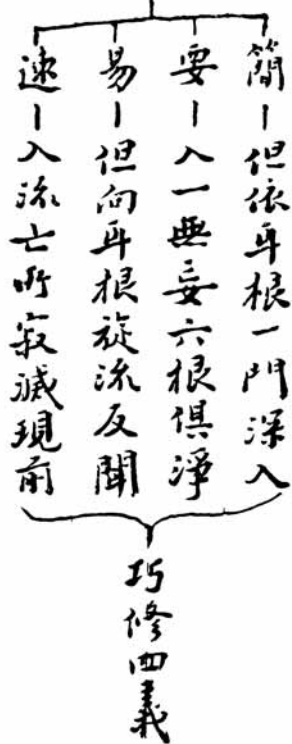 簡｜但依耳根一門深入
要｜入一無妄六根俱淨
易｜但向耳根旋流反聞
速｜入流亡所寂滅現前
巧修四義